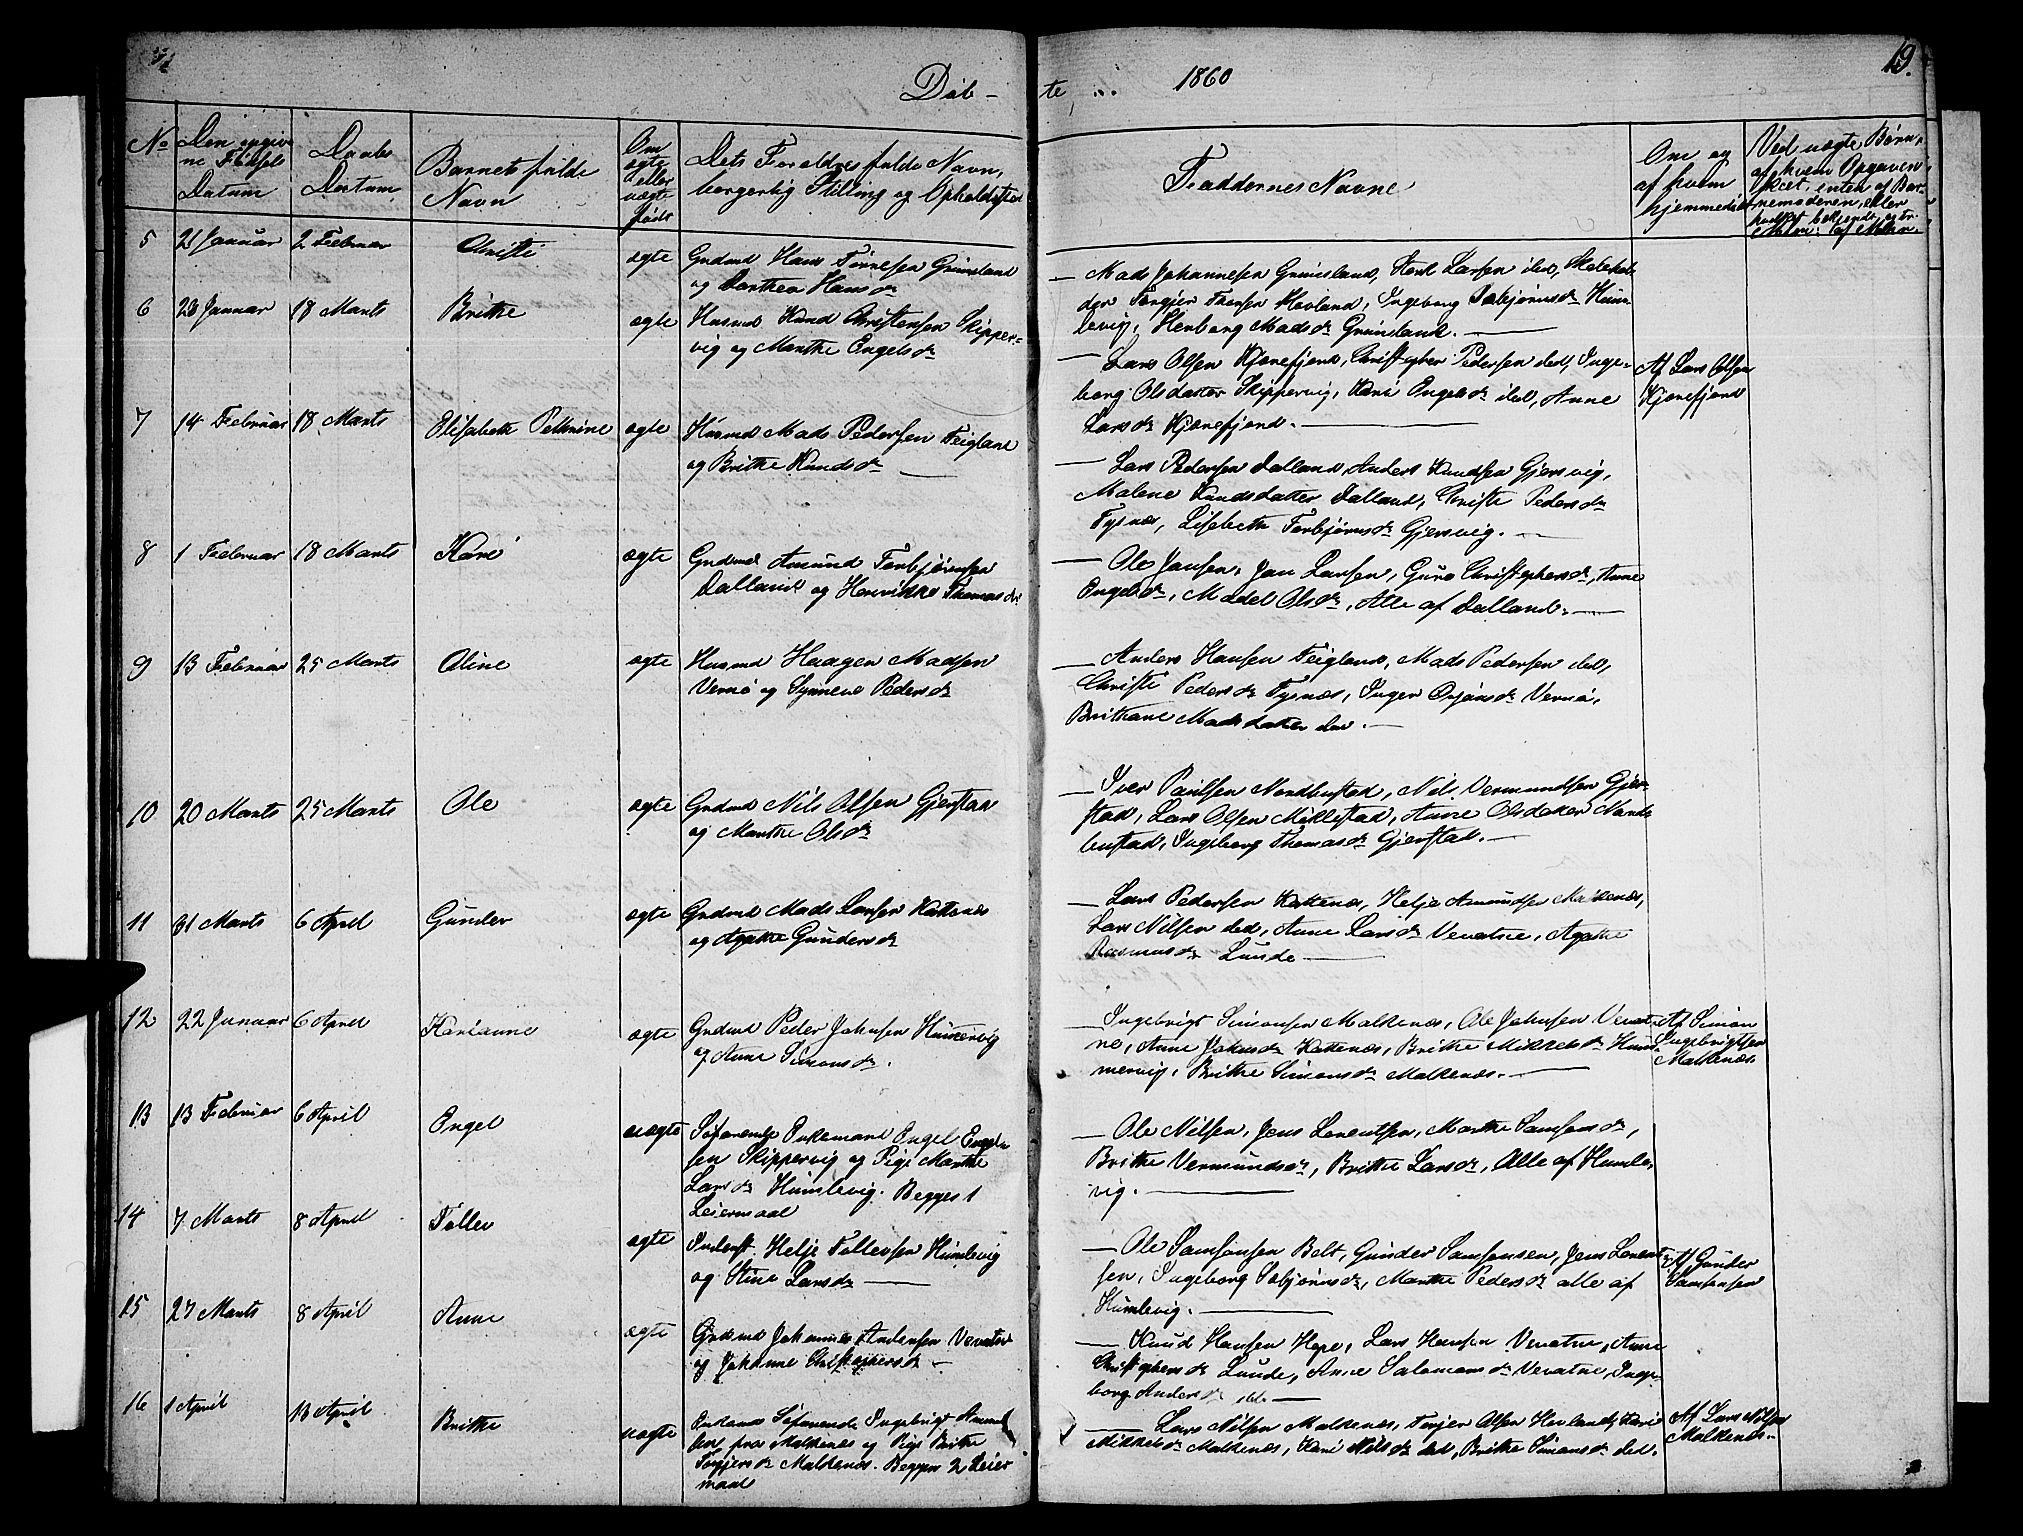 Døb-
te
1860
19.
No
Den opgiv
ne Fødsels
Datum
Daabs
Datum
Barnets fulde
Navn
Om
ægte
eller
uægte
født
Dets Foraldres fulde Navn,
borgerlig Stilling og Opholdsted
Faddernes Navne
Om og
af hvem
hjemmedøbt
Ved uægte Børn,
af hvem Opgaven
skeet, enten af Bar-
nemoderen, eller
5
21 Januar
2 Februar
Christi
ægte
Grdmd Hans Tørresen Grimsland
og Dorthea Hansdr
— Mads Johannesen Grimsland, Lars Larsen ibd, Skolehol
der Torgier Thorsen Hovland, Ingeborg Sæbjørnsdr Hum
levig, Herborg Madsdr Grimsland. —
6
23 Januar
18 Marts
Brithe
ægte
Husmd Knud Christensen Skipper-
vig og Marthe Engelsdr
— Lars Olsen Kjærefjord, Christopher Pedersen ibd, Inge-
borg Olsdatter Skippervig, Kari Engelsdr ibd, Anne
Larsdr Kjærefjord. —
Af Lars Olsen
Kjærefjord
7
14 Februar
18 Marts
Elisabeth Pethrine
ægte
Husmd Mads Pedersen Teigland
og Brithe Knudsdr —
— Lars Pedersen Dalland, Anders Knudsen Gjersvig,
Malene Knudsdatter Dalland, Christe Pedersdr
Tysnæs, Lisebeth Torbjørnsdr Gjersvig. —
8
1 Februar
18 Marts
Kari
ægte
Grdmd Amund Torbjørnsen
Dalland og Henrikke Thomasdr
— Ole Jansen, Jan Larsen, Guro Christophersdr, Anne
Engelsdr, Madel Olsdr, Alle af Dalland. —
9
13 Februar
25 Marts
Oline
ægte
Husmd Haagen Madsen
Vernø og Synneve Pedersdr
— Anders Hansen Teigland, Mads Pedersen ibd,
Christi Pedersdr Tysnæs, Inger Ørjansdr Vernø,
Brithane Madsdatter ibd. —
10
20 Marts
25 Marts
Ole
ægte
Grdmd Nils Olsen Gjerstad
og Marthe Olsdr
— Iver Paulsen Nordbustad, Nils Vermundsen Gjer-
stad, Lars Olsen Miklestad, Anne Olsdatter Nord
bustad, Ingeborg Thomasdr Gjerstad. —
11
31 Marts
6 April
Gunder
ægte
Grdmd Mads Larsen Kattenæs
og Agathe Gundersdr
— Lars Pedersen Kattenæs, Helje Amundsen Malkenæs,
Lars Nilsen ibd, Anne Larsdr Vevatne, Agathe
Rasmusdr Lunde —
12
22 Januar
6 April
Karianne
ægte
Grdmd Peder Johnsen Hummervig
og Anne Simonsdr.
— Ingebrigt Simonsen Malkenæs, Ole Johnsen Vevat-
ne, Anne Johnsdr Kattenæs, Brithe Mikkelsdr Hum-
mervig, Brithe Simonsdr Malkenæs. —
Af Simon
Ingebrigtsen
Malkenæs
13
13 Februar
6 April
Engel
uægte
Søfarende Enkemand Engel Engel
sen Skippervig og Pige Marthe
Larsdr Humlevig. Begges 1
Leiermaal
— Ole Nilsen, Jens Lorentsen, Marthe Samsonsdr,
Brithe Vermundsdr, Brithe Larsdr, Alle af Humle-
vig. —
14
7 Marts
8 April
Tollev
ægte
Inderst. Helje Tollevsen Humlevig
og Stine Larsdr —
— Ole Samsonsen Belt, Gunder Samsonsen, Jens Lorent-
sen, Ingeborg Sæbjørnsdr, Marthe Pedersdr alle af
Humlevig. —
Af Gunder
Samsonsen
15
27 Marts
8 April
Anne
ægte
Grdmd Johannes Andersen Vevatne
og Johanne Christophersdr —
— Knud Hansen Hope, Lars Hansen Vevatne, Anne
Christophersdr Lunde, Anna Salomonsdr Vevatne, Inge-
borg Andersdr ibd. —
16
1 April
13 April
Brithe
uægte
Enkemd Søfarende Ingebrigt Amund
sen fra Malkenæs og Pige Brithe
Torgjersdr Malkenæs. Begges 2 Leier
maal
— Lars Nilsen Malkenæs, Torjer Olsen Hovland, Kari
Mikkelsdr Malkenæs, Kari Nilsdr ibd, Brithe Simonsdr ibd.
Af Lars Nilsen
Malkenæs.